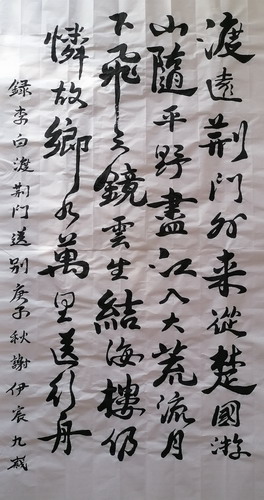 渡遠荆門外来從楚國游
山隨平野盡江入大荒流月
下飛天鏡雲生結海樓仍
憐故鄉水萬里送行舟
録李白渡荆門送别庚子秋謝伊宸九歲